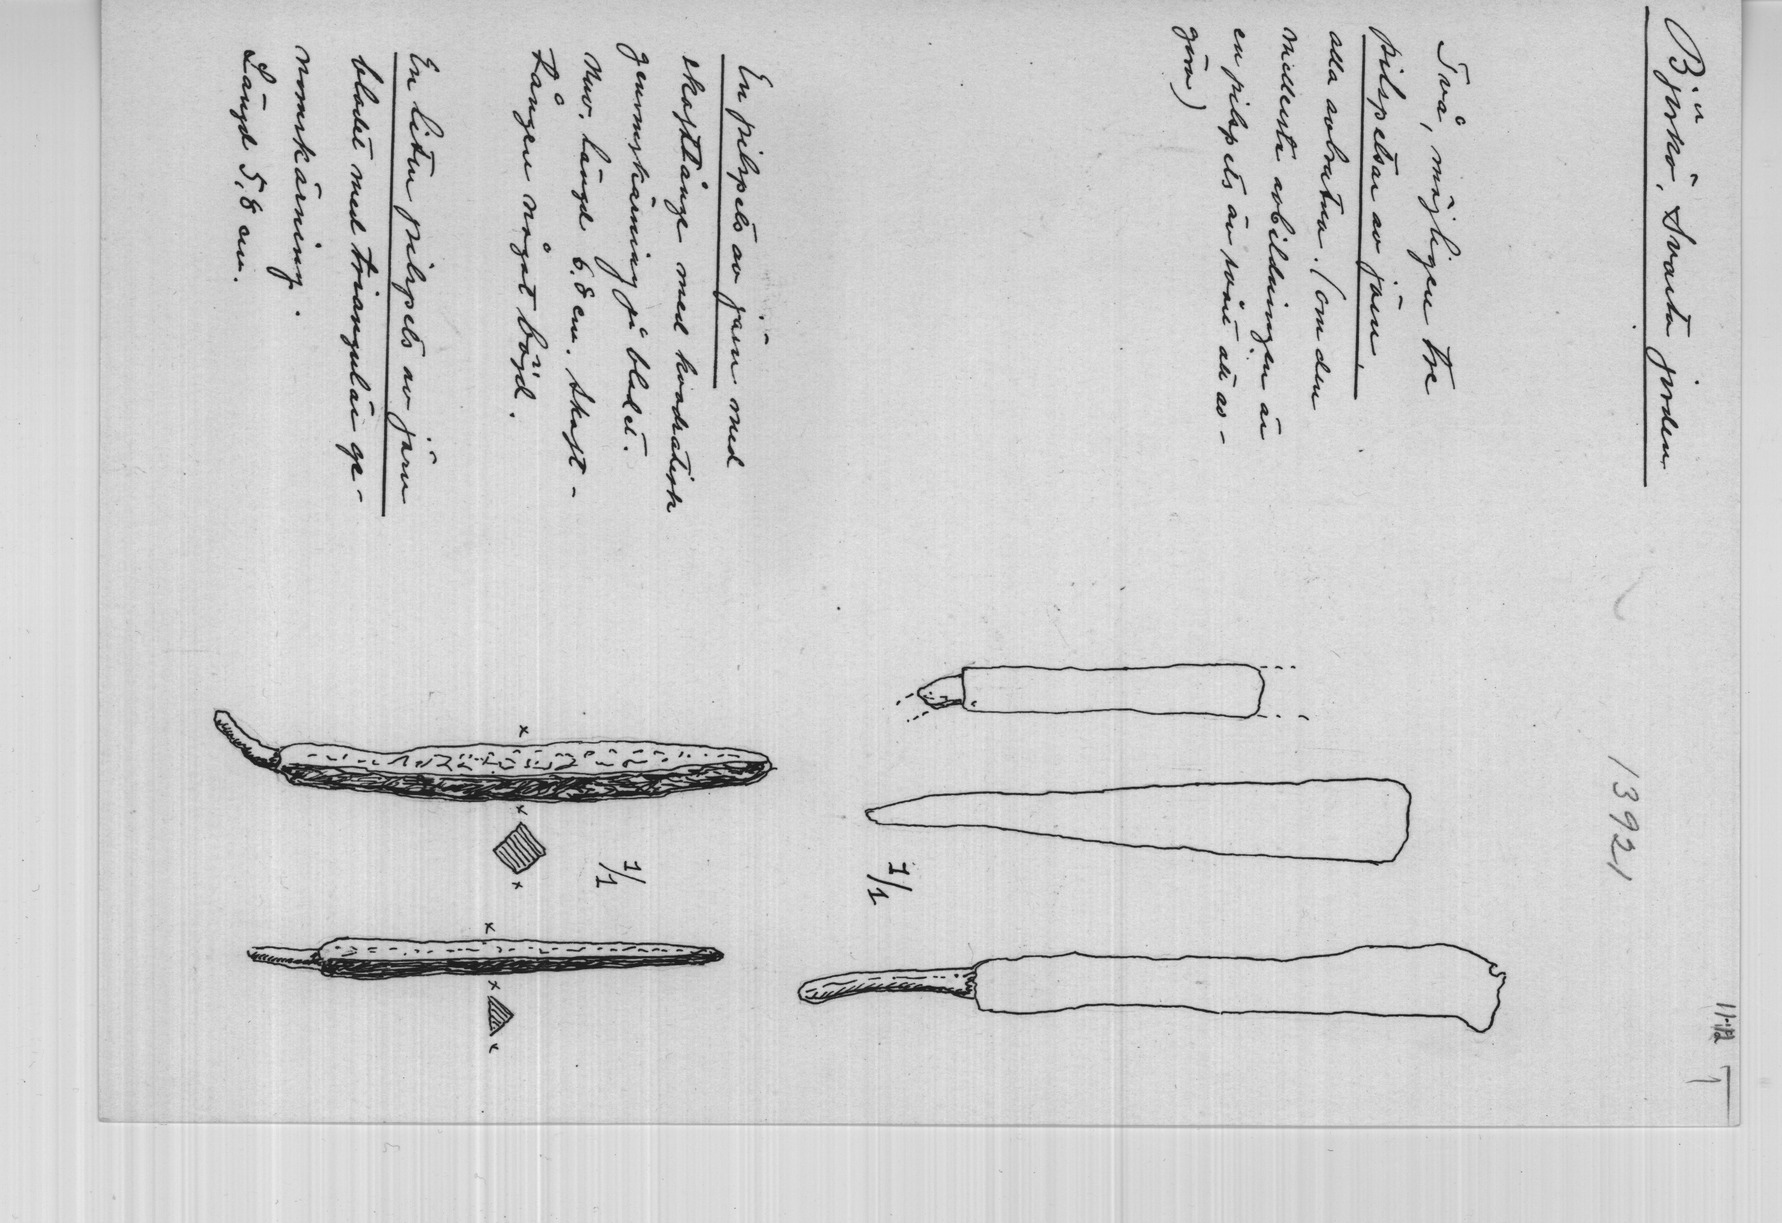 Björkö, Svarta jorden
13921
Två, möjligen tre
pilspetsar av järn,
alla avbrutna. (om den
mittersta avbildningen är
en pilspets är svårt att av-
göra)
1/1
En pilspets av järn med
skafttånge med kvadratisk
genomskärning på bladet.
Nuv. längd 6,8 cm. Skaft-
tången något böjd.
1/1
En liten pilspets av järn
bladet med triangulär ge-
nomskärning.
Längd 5,8 cm.